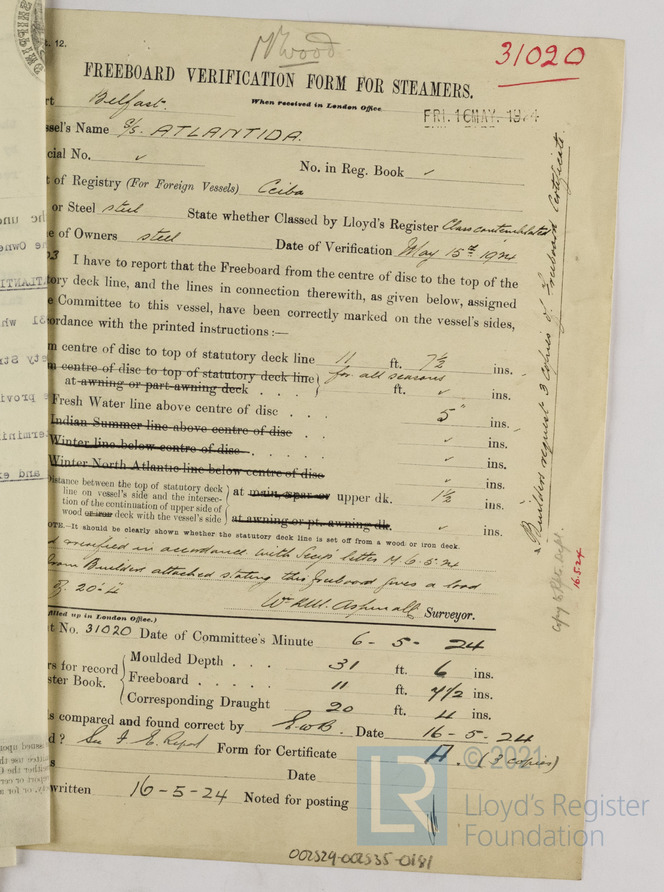 t. 12.
Mwood
31020
FREEBOARD VERIFICATION FORM FOR STEAMERS.
When received in London Office
rt Belfast.
FRI. 16 MAY. 1924
ssel's Name S/S. ATLANTIDA.
cial No. ✓
No. in Reg. Book ✓
t of Registry (For Foreign Vessels) Ceiba
or Steel steel State whether Classed by Lloyd's Register Class contemplated
e of Owners steel Date of Verification May 15th 1924
I have to report that the Freeboard from the centre of disc to the top of the
tory deck line, and the lines in connection therewith, as given below, assigned
e Committee to this vessel, have been correctly marked on the vessel's sides,
ordance with the printed instructions :—
m centre of disc to top of statutory deck line 11 ft. 7½ ins.
m centre of disc to top of statutory deck line for all seasons
at awning or part awning deck . . . ft. ✓ ins.
Fresh Water line above centre of disc . . . 5" ins.
Indian Summer line above centre of disc . . ✓ ins.
Winter line below centre of disc . . . . . ✓ ins.
Winter North Atlantic line below centre of disc ✓ ins.
Distance between the top of statutory deck
line on vessel's side and the intersec-
tion of the continuation of upper side of
wood or iron deck with the vessel's side
at main, spar or upper dk. 1½ ins.
at awning or pt. awning dk. ✓ ins.
NOTE.—It should be clearly shown whether the statutory deck line is set off from a wood or iron deck.
d verified in accordance with Secy's letter M 6.5.24
from Builders attached stating this freeboard gives a load
of 20'-4"
Surveyor.
filled up in London Office.)
t No. 31020 Date of Committee's Minute 6 - 5 - 24
rs for record
ster Book.
Moulded Depth . . . 31 ft. 6 ins.
Freeboard . . . . . 11 ft. 7½ ins.
Corresponding Draught 20 ft. 4 ins.
s compared and found correct by E.W.B. Date 16 - 5 - 24
d? See F. E. Report Form for Certificate A. (3 copies)
s Date
written 16-5-24 Noted for posting
Builders request 3 copies of Freeboard Certificate.
16.5.24
© 2021
LR
Lloyd's Register
Foundation
002329-002335-0181